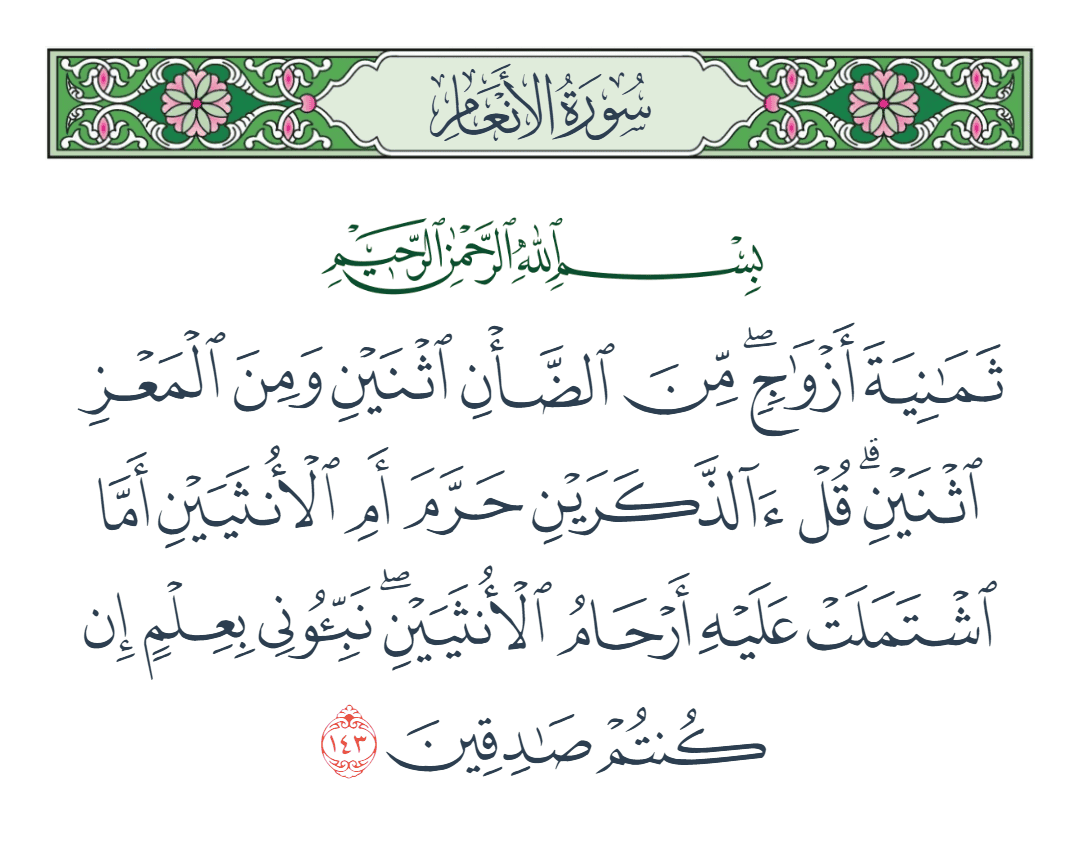 سُورَةُ الأَنْعَامِ
بِسْمِ ٱللَّهِ ٱلرَّحْمَٰنِ ٱلرَّحِيمِ
ثَمَٰنِيَةَ أَزْوَٰجٖۖ مِّنَ ٱلضَّأْنِ ٱثْنَيْنِ وَمِنَ ٱلْمَعْزِ
ٱثْنَيْنِۗ قُلْ ءَآلذَّكَرَيْنِ حَرَّمَ أَمِ ٱلْأُنثَيَيْنِ أَمَّا
ٱشْتَمَلَتْ عَلَيْهِ أَرْحَامُ ٱلْأُنثَيَيْنِۖ نَبِّـُٔونِى بِعِلْمٍ إِن
كُنتُمْ صَٰدِقِينَ ١٤٣